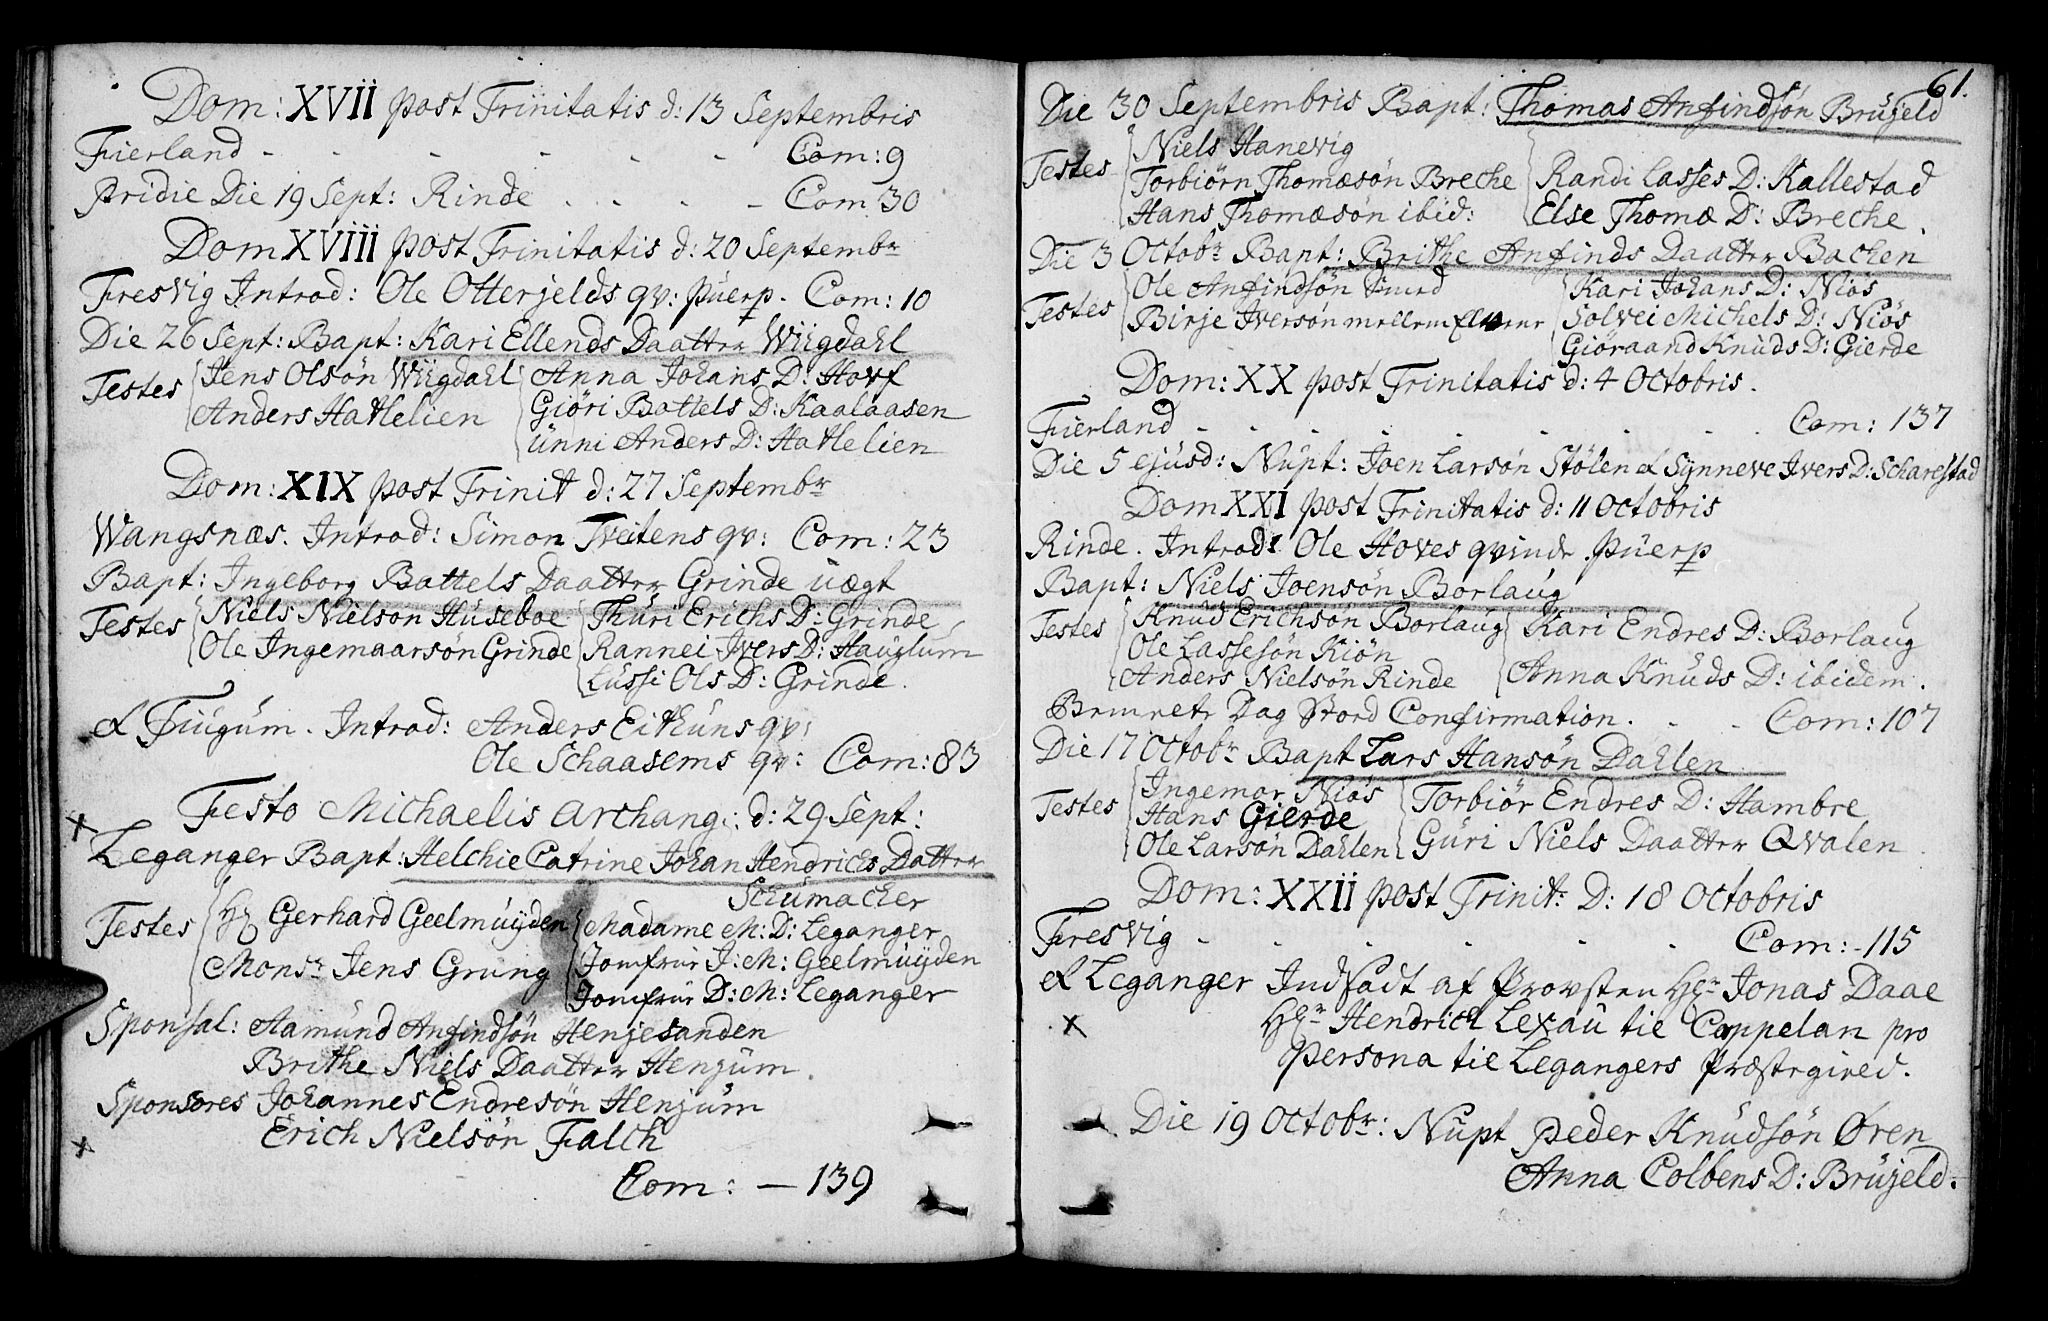 Dom: XVII post Trinitatis d: 13 Septembris
Fierland - - - - - - Com: 9
Pridie Die 19 Sept: Rinde . . . - Com 30
Dom XVIII post Trinitatis d: 20 Septembr
Fresvig Introd: Ole Otterjelds qv: püerp. Com: 10
Die 26 Sept: Bapt: Kari Ellends Daatter Wiigdahl
Testes Jens Olsön Wiigdahl Anna Johans D: Hovf
Anders Hathelien Giöri Battels D: Kaalaasen
ünni Anders D: Hathelien
Dom: XIX post Trinit d: 27 Septembr
Wangsnæs. Introd: Simon Treitens qv: Com: 23
Bapt: Ingeborg Battels Daatter Grinde üægt
Testes Niels Nielson Hüseboe Thüri Erichs D: Grinde
Ole Ingemaarsön Grinde Rannei Ivers D: Hauglüm
Lüssi Ols D: Grinde.
& Tiugüm. Introd: Anders Eithüns qv:
Ole Schaasems qv: Com: 83
Festo Michaelis Archang: d: 29 Sept:
x
Leganger Bapt: Helchie Catrine Johan Hendrichs Datter
Schümacher
Testes Hr Gerhard Geelmüyden Madame M: D: Leganger
Monsr Jens Grüng Jomfrür J: M: Geelmüyden
Jomfrür D: M: Leganger
Sponsal: Aamünd Anfindsön Henjesanden
Brithe Niels Daatter Henjüm.
Sponsores Johannes Endresön Henjüm
Erich Nielsön Falch
x
Com: - 139
61.
Die 30 Septembris Bapt: Thomas Anfindsön Brüjeld
Testes Niels Hanevig
Torbiörn Thomæsön Breche Randi Lasses D: Kallestad
Hans Thomæsön ibid: Else Thomæ D: Breche.
Die 3 Octobr Bapt: Brithe Anfinds Daatter Bachen
Testes Ole Anfindsön Kari Johans D: Niös
Birje Iversön mellem Solvei Michels D: Niös
Giöraand Knüds D: Gierde
Dom: XX post Trinitatis d: 4 Octobris.
Fierland - - - - - - - . Com: 137
Die 5 ejusd: Nüpt: Joen Larsön Stölen & Synneve Ivers D: Scharestad
Dom XXI post Trinitatis d: 11 Octobris
Rinde. Introd: Ole Hoves qvinde. püerp
Bapt: Niels Joensön Borlaug
Testes Knüd Erichsön Borlaug Kari Endres D: Borlaug
Ole Lassesön Kiön
Anders Nielsön Rinde Anna Knüds D: ibidem.
Dag Stord Confirmation. - - Com: 107
Die 17 Octobr Bapt Lars Hansön Dahlen
Testes Ingemor Niös Torbiör Endres D: Hambre
Hans Gierde
Ole Larsön Dahlen Güri Niels Daatter Qvalen.
Dom: XXII post Trinit: D: 18 Octobris
Fresvig - - - - - - Com: - 115
& Leganger Indsadt af Provsten Hr Jonas Daae
x
Hr Hendrich Lexaü til Cappelan pro
persona til Legangers Præstegield.
Die 19 Octobr: Nüpt Peder Knüdsön Øren
Anna Colbens D: Brüjeld.